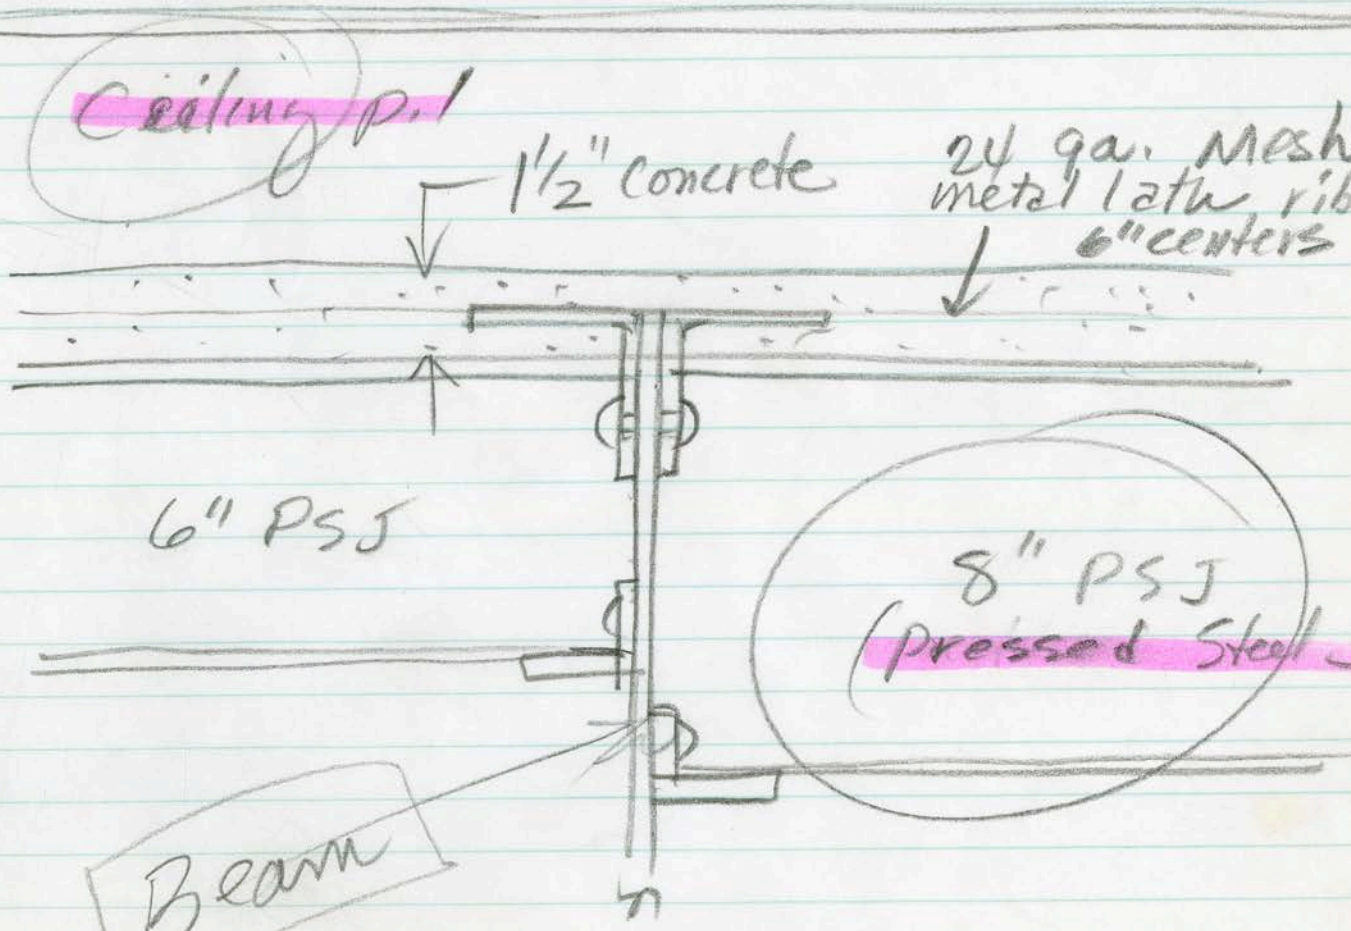 Ceiling p.1
1 1/2" Concrete
24 ga. Mesh
metal lath rib
6" centers
6" PSJ
8" PSJ
(pressed Steel
Beam